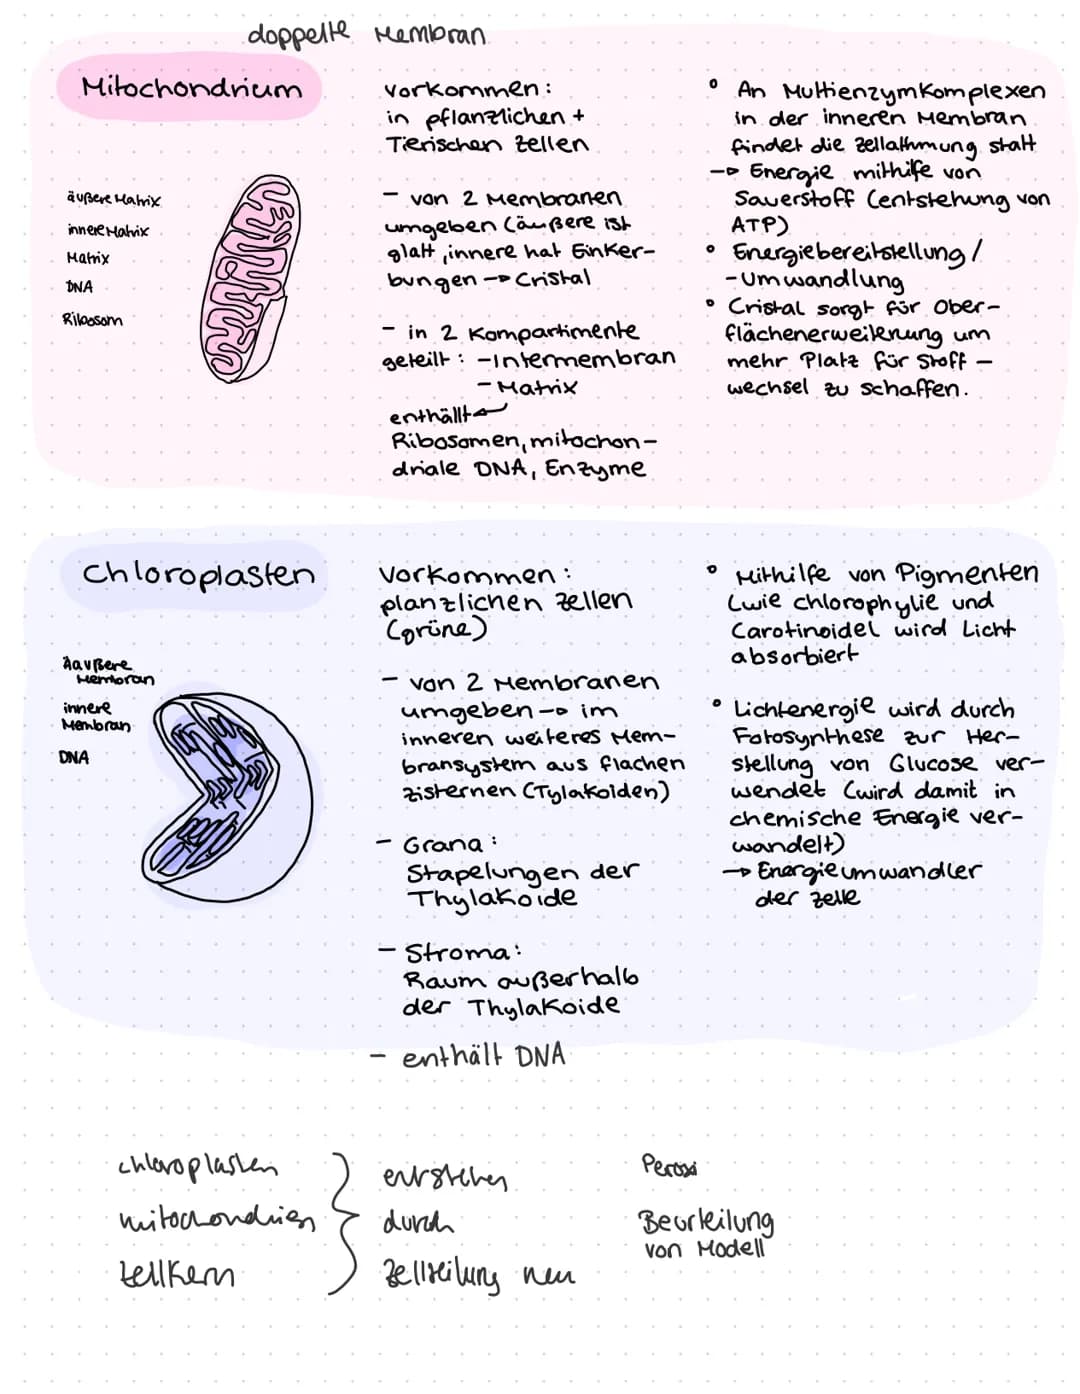 doppelte Membran
Mitochondrium
äußere Matrix
innere Matrix
Matrix
DNA
Ribosom
Vorkommen:
in pflanzlichen +
Tierischen Zellen
- von 2 Membranen
umgeben (äußere ist
glatt, innere hat Einker-
bungen → Cristal
- in 2 Kompartimente
geteilt: - Intermembran
- Matrix
enthällt
Ribosomen, mitochon-
driale DNA, Enzyme
° An Multienzymkomplexen
in der inneren Membran
findet die Zellathmung statt
→ Energie mithilfe von
Sauerstoff (entstehung von
ATP)
° Energiebereitstellung /
-Umwandlung
° Cristal sorgt für Ober-
flächenerweiterung um
mehr Platz für Stoff-
wechsel zu schaffen.
Chloroplasten
Äaußere
Membran
innere
Membran
DNA
Vorkommen:
planzlichen Zellen
(grüne)
- von 2 Membranen
umgeben → im
inneren weiteres Mem-
bransystem aus flachen
Zisternen (Tylakoiden)
- Grana:
Stapelungen der
Thylakoide
- Stroma:
Raum außerhalb
der Thylakoide
- enthält DNA
° Mithilfe von Pigmenten
(wie chlorophylle und
Carotinoide) wird Licht
absorbiert
° Lichtenergie wird durch
Fotosynthese zur Her-
stellung von Glucose ver-
wendet (wird damit in
chemische Energie ver-
wandelt)
→ Energieumwandler
der Zelle
chloroplasten
mitochondrien
Zellkern
entstehen
durch
Zellteilung neu
Peroxi
Beurteilung
von Modell